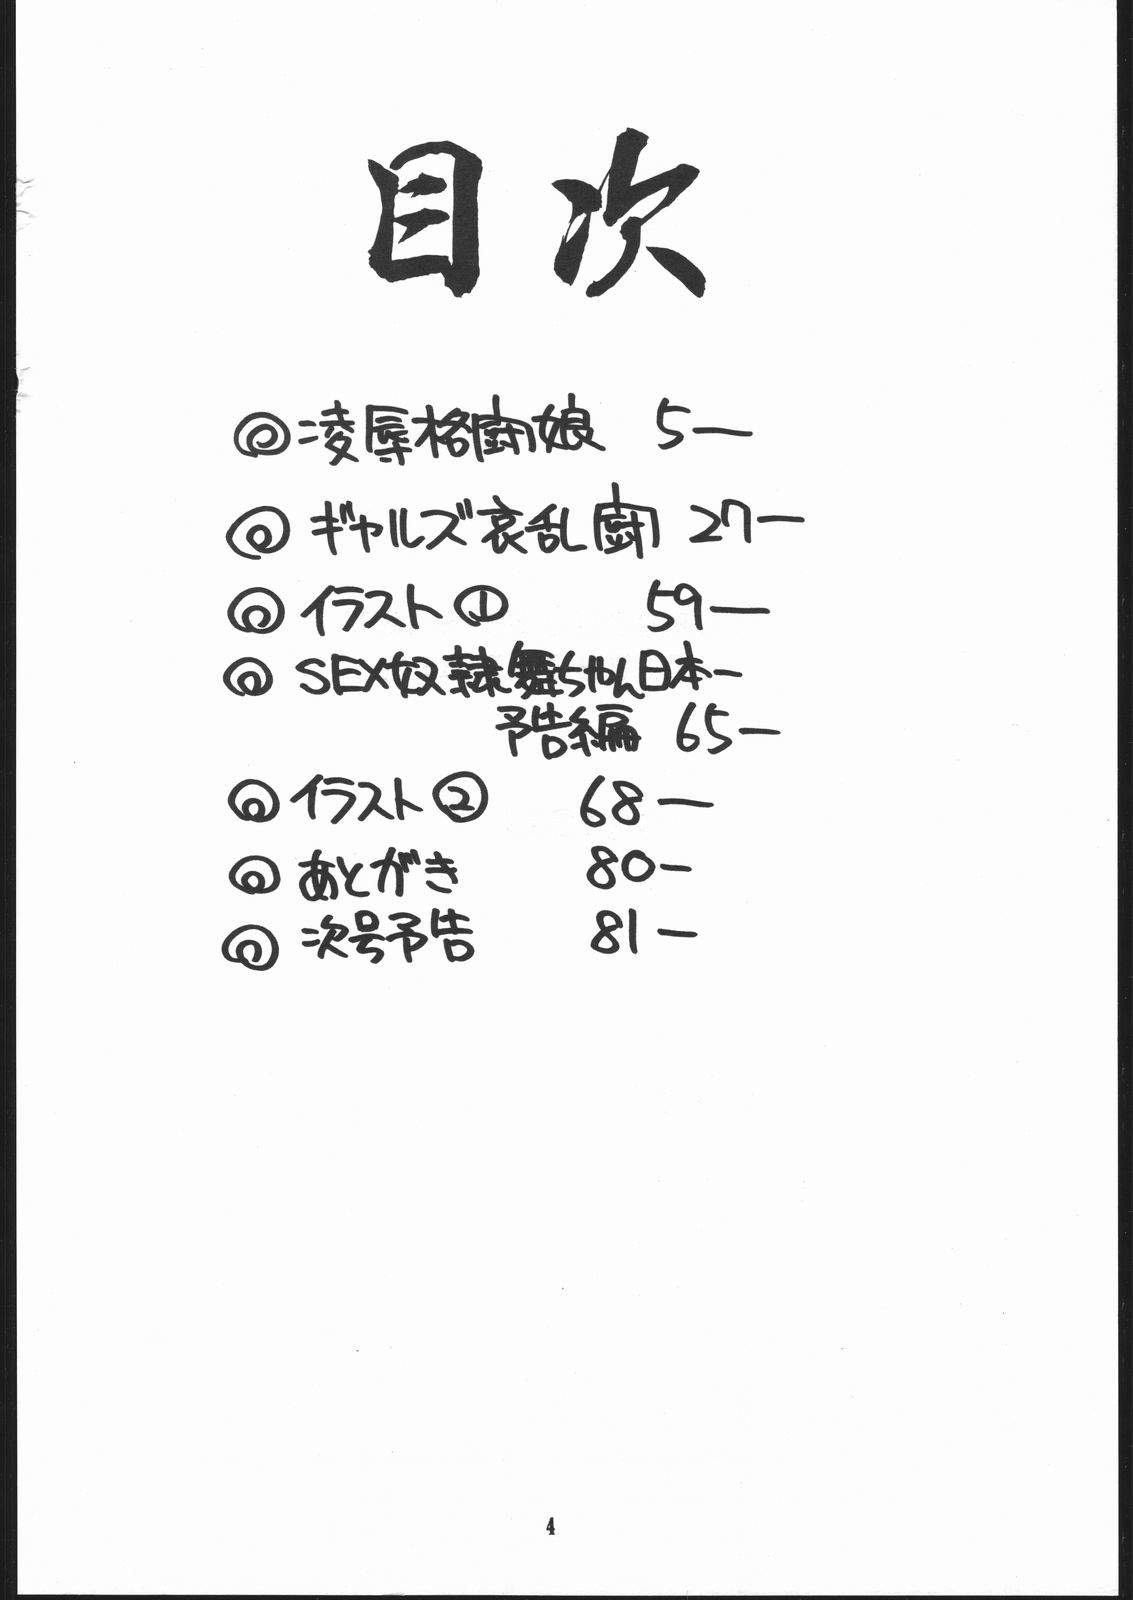 目次
◎凌辱格闘娘 5―
◎ギャルズ哀乱闘 27―
◎イラスト① 59―
◎SEX奴隷舞ちゃん日本一
予告編 65―
◎イラスト② 68―
◎あとがき 80―
◎次号予告 81―
4